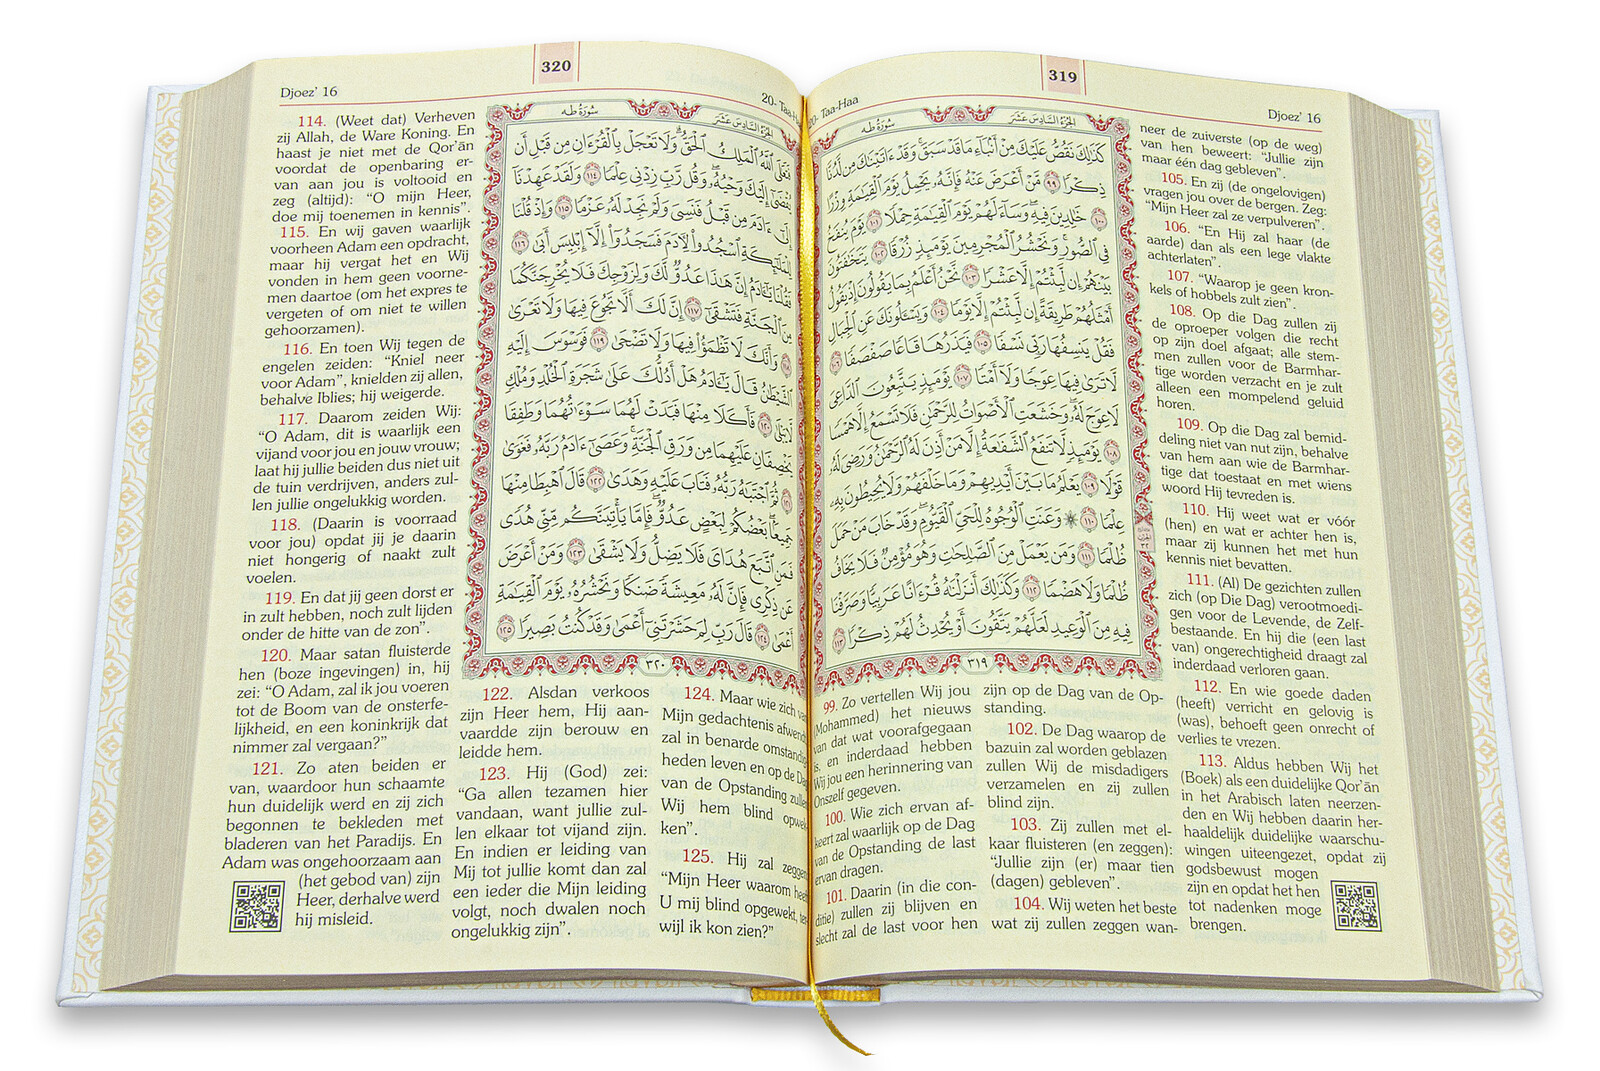 319
20- Taa-Haa
Djoez’ 16
سُورَةُ طه
الجُزْءُ السَّادِسَ عَشَرَ
كَذَٰلِكَ نَقُصُّ عَلَيْكَ مِنْ أَنۢبَآءِ مَا قَدْ سَبَقَ ۚ وَقَدْ ءَاتَيْنَٰكَ مِن لَّدُنَّا
ذِكْرًا ٩٩ مَّنْ أَعْرَضَ عَنْهُ فَإِنَّهُۥ يَحْمِلُ يَوْمَ ٱلْقِيَٰمَةِ وِزْرًا
١٠٠ خَٰلِدِينَ فِيهِ ۖ وَسَآءَ لَهُمْ يَوْمَ ٱلْقِيَٰمَةِ حِمْلًا ١٠١ يَوْمَ يُنفَخُ
فِى ٱلصُّورِ ۚ وَنَحْشُرُ ٱلْمُجْرِمِينَ يَوْمَئِذٍ زُرْقًا ١٠٢ يَتَخَٰفَتُونَ
بَيْنَهُمْ إِن لَّبِثْتُمْ إِلَّا عَشْرًا ١٠٣ نَّحْنُ أَعْلَمُ بِمَا يَقُولُونَ إِذْ يَقُولُ
أَمْثَلُهُمْ طَرِيقَةً إِن لَّبِثْتُمْ إِلَّا يَوْمًا ١٠٤ وَيَسْـَٔلُونَكَ عَنِ ٱلْجِبَالِ
فَقُلْ يَنسِفُهَا رَبِّى نَسْفًا ١٠٥ فَيَذَرُهَا قَاعًا صَفْصَفًا ١٠٦
لَّا تَرَىٰ فِيهَا عِوَجًا وَلَآ أَمْتًا ١٠٧ يَوْمَئِذٍ يَتَّبِعُونَ ٱلدَّاعِىَ
لَا عِوَجَ لَهُۥ ۖ وَخَشَعَتِ ٱلْأَصْوَاتُ لِلرَّحْمَٰنِ فَلَا تَسْمَعُ إِلَّا هَمْسًا
١٠٨ يَوْمَئِذٍ لَّا تَنفَعُ ٱلشَّفَٰعَةُ إِلَّا مَنْ أَذِنَ لَهُ ٱلرَّحْمَٰنُ وَرَضِىَ لَهُۥ
قَوْلًا ١٠٩ يَعْلَمُ مَا بَيْنَ أَيْدِيهِمْ وَمَا خَلْفَهُمْ وَلَا يُحِيطُونَ بِهِۦ
عِلْمًا ١١٠ ۞ وَعَنَتِ ٱلْوُجُوهُ لِلْحَىِّ ٱلْقَيُّومِ ۖ وَقَدْ خَابَ مَنْ حَمَلَ
ظُلْمًا ١١١ وَمَن يَعْمَلْ مِنَ ٱلصَّٰلِحَٰتِ وَهُوَ مُؤْمِنٌ فَلَا يَخَافُ
ظُلْمًا وَلَا هَضْمًا ١١٢ وَكَذَٰلِكَ أَنزَلْنَٰهُ قُرْءَانًا عَرَبِيًّا وَصَرَّفْنَا
فِيهِ مِنَ ٱلْوَعِيدِ لَعَلَّهُمْ يَتَّقُونَ أَوْ يُحْدِثُ لَهُمْ ذِكْرًا ١١٣
٣١٩
99. Zo vertellen Wij jou
(Mohammed) het nieuws
van dat wat voorafgegaan
is, en inderdaad hebben
Wij jou een herinnering van
Onszelf gegeven.
100. Wie zich ervan af-
keert zal waarlijk op de Dag
van de Opstanding de last
ervan dragen.
101. Daarin (in die con-
ditie) zullen zij blijven en
slecht zal de last voor hen
zijn op de Dag van de Op-
standing.
102. De Dag waarop de
bazuin zal worden geblazen
zullen Wij de misdadigers
verzamelen en zij zullen
blind zijn.
103. Zij zullen met el-
kaar fluisteren (en zeggen):
“Jullie zijn (er) maar tien
(dagen) gebleven”.
104. Wij weten het beste
wat zij zullen zeggen wan-
neer de zuiverste (op de weg)
van hen beweert: “Jullie zijn
maar één dag gebleven”.
105. En zij (de ongelovigen)
vragen jou over de bergen. Zeg:
“Mijn Heer zal ze verpulveren”.
106. “En Hij zal haar (de
aarde) dan als een lege vlakte
achterlaten”.
107. “Waarop je geen kron-
kels of hobbels zult zien”.
108. Op die Dag zullen zij
de oproeper volgen die recht
op zijn doel afgaat; alle stem-
men zullen voor de Barmhar-
tige worden verzacht en je zult
alleen een mompelend geluid
horen.
109. Op die Dag zal bemid-
deling niet van nut zijn, behalve
van hem aan wie de Barmhar-
tige dat toestaat en met wiens
woord Hij tevreden is.
110. Hij weet wat er vóór
(hen) en wat er achter hen is,
maar zij kunnen het met hun
kennis niet bevatten.
111. (Al) De gezichten zullen
zich (op Die Dag) verootmoedi-
gen voor de Levende, de Zelf-
bestaande. En hij die (een last
van) ongerechtigheid draagt zal
inderdaad verloren gaan.
112. En wie goede daden
(heeft) verricht en gelovig is
(was), behoeft geen onrecht of
verlies te vrezen.
113. Aldus hebben Wij het
(Boek) als een duidelijke Qor’ān
in het Arabisch laten neerzen-
den en Wij hebben daarin her-
haaldelijk duidelijke waarschu-
wingen uiteengezet, opdat zij
godsbewust mogen
zijn en opdat het hen
tot nadenken moge
brengen.
320
Djoez’ 16
20- Taa-H
سُورَةُ طه
الجُزْءُ السَّادِسَ عَشَرَ
فَتَعَٰلَى ٱللَّهُ ٱلْمَلِكُ ٱلْحَقُّ ۗ وَلَا تَعْجَلْ بِٱلْقُرْءَانِ مِن قَبْلِ أَن
يُقْضَىٰٓ إِلَيْكَ وَحْيُهُۥ ۖ وَقُل رَّبِّ زِدْنِى عِلْمًا ١١٤ وَلَقَدْ عَهِدْنَآ
إِلَىٰٓ ءَادَمَ مِن قَبْلُ فَنَسِىَ وَلَمْ نَجِدْ لَهُۥ عَزْمًا ١١٥ وَإِذْ قُلْنَا
لِلْمَلَٰٓئِكَةِ ٱسْجُدُوا۟ لِـَٔادَمَ فَسَجَدُوٓا۟ إِلَّآ إِبْلِيسَ أَبَىٰ ١١٦
فَقُلْنَا يَٰٓـَٔادَمُ إِنَّ هَٰذَا عَدُوٌّ لَّكَ وَلِزَوْجِكَ فَلَا يُخْرِجَنَّكُمَا
مِنَ ٱلْجَنَّةِ فَتَشْقَىٰٓ ١١٧ إِنَّ لَكَ أَلَّا تَجُوعَ فِيهَا وَلَا تَعْرَىٰ
١١٨ وَأَنَّكَ لَا تَظْمَؤُا۟ فِيهَا وَلَا تَضْحَىٰ ١١٩ فَوَسْوَسَ إِلَيْهِ
ٱلشَّيْطَٰنُ قَالَ يَٰٓـَٔادَمُ هَلْ أَدُلُّكَ عَلَىٰ شَجَرَةِ ٱلْخُلْدِ وَمُلْكٍ
لَّا يَبْلَىٰ ١٢٠ فَأَكَلَا مِنْهَا فَبَدَتْ لَهُمَا سَوْءَٰتُهُمَا وَطَفِقَا
يَخْصِفَانِ عَلَيْهِمَا مِن وَرَقِ ٱلْجَنَّةِ ۚ وَعَصَىٰٓ ءَادَمُ رَبَّهُۥ فَغَوَىٰ
١٢١ ثُمَّ ٱجْتَبَٰهُ رَبُّهُۥ فَتَابَ عَلَيْهِ وَهَدَىٰ ١٢٢ قَالَ ٱهْبِطَا مِنْهَا
جَمِيعًۢا ۖ بَعْضُكُمْ لِبَعْضٍ عَدُوٌّ ۖ فَإِمَّا يَأْتِيَنَّكُم مِّنِّى هُدًى
فَمَنِ ٱتَّبَعَ هُدَاىَ فَلَا يَضِلُّ وَلَا يَشْقَىٰ ١٢٣ وَمَنْ أَعْرَضَ
عَن ذِكْرِى فَإِنَّ لَهُۥ مَعِيشَةً ضَنكًا وَنَحْشُرُهُۥ يَوْمَ ٱلْقِيَٰمَةِ
أَعْمَىٰ ١٢٤ قَالَ رَبِّ لِمَ حَشَرْتَنِىٓ أَعْمَىٰ وَقَدْ كُنتُ بَصِيرًا ١٢٥
٣٢٠
114. (Weet dat) Verheven
zij Allah, de Ware Koning. En
haast je niet met de Qor’ān
voordat de openbaring er-
van aan jou is voltooid en
zeg (altijd): “O mijn Heer,
doe mij toenemen in kennis”.
115. En wij gaven waarlijk
voorheen Adam een opdracht,
maar hij vergat het en Wij
vonden in hem geen voorne-
men daartoe (om het expres te
vergeten of om niet te willen
gehoorzamen).
116. En toen Wij tegen de
engelen zeiden: “Kniel neer
voor Adam”, knielden zij allen,
behalve Iblies; hij weigerde.
117. Daarom zeiden Wij:
“O Adam, dit is waarlijk een
vijand voor jou en jouw vrouw;
laat hij jullie beiden dus niet uit
de tuin verdrijven, anders zul-
len jullie ongelukkig worden.
118. (Daarin is voorraad
voor jou) opdat jij je daarin
niet hongerig of naakt zult
voelen.
119. En dat jij geen dorst er
in zult hebben, noch zult lijden
onder de hitte van de zon”.
120. Maar satan fluisterde
hen (boze ingevingen) in, hij
zei: “O Adam, zal ik jou voeren
tot de Boom van de onsterfe-
lijkheid, en een koninkrijk dat
nimmer zal vergaan?”
121. Zo aten beiden er
van, waardoor hun schaamte
hun duidelijk werd en zij zich
begonnen te bekleden met
bladeren van het Paradijs. En
Adam was ongehoorzaam aan
(het gebod van) zijn
Heer, derhalve werd
hij misleid.
122. Alsdan verkoos
zijn Heer hem, Hij aan-
vaardde zijn berouw en
leidde hem.
123. Hij (God) zei:
“Ga allen tezamen hier
vandaan, want jullie zul-
len elkaar tot vijand zijn.
En indien er leiding van
Mij tot jullie komt dan zal
een ieder die Mijn leiding
volgt, noch dwalen noch
ongelukkig zijn”.
124. Maar wie zich van
Mijn gedachtenis afwendt
zal in benarde omstandig-
heden leven en op de Dag
van de Opstanding zullen
Wij hem blind opwek-
ken”.
125. Hij zal zeggen:
“Mijn Heer waarom heeft
U mij blind opgewekt, ter-
wijl ik kon zien?”